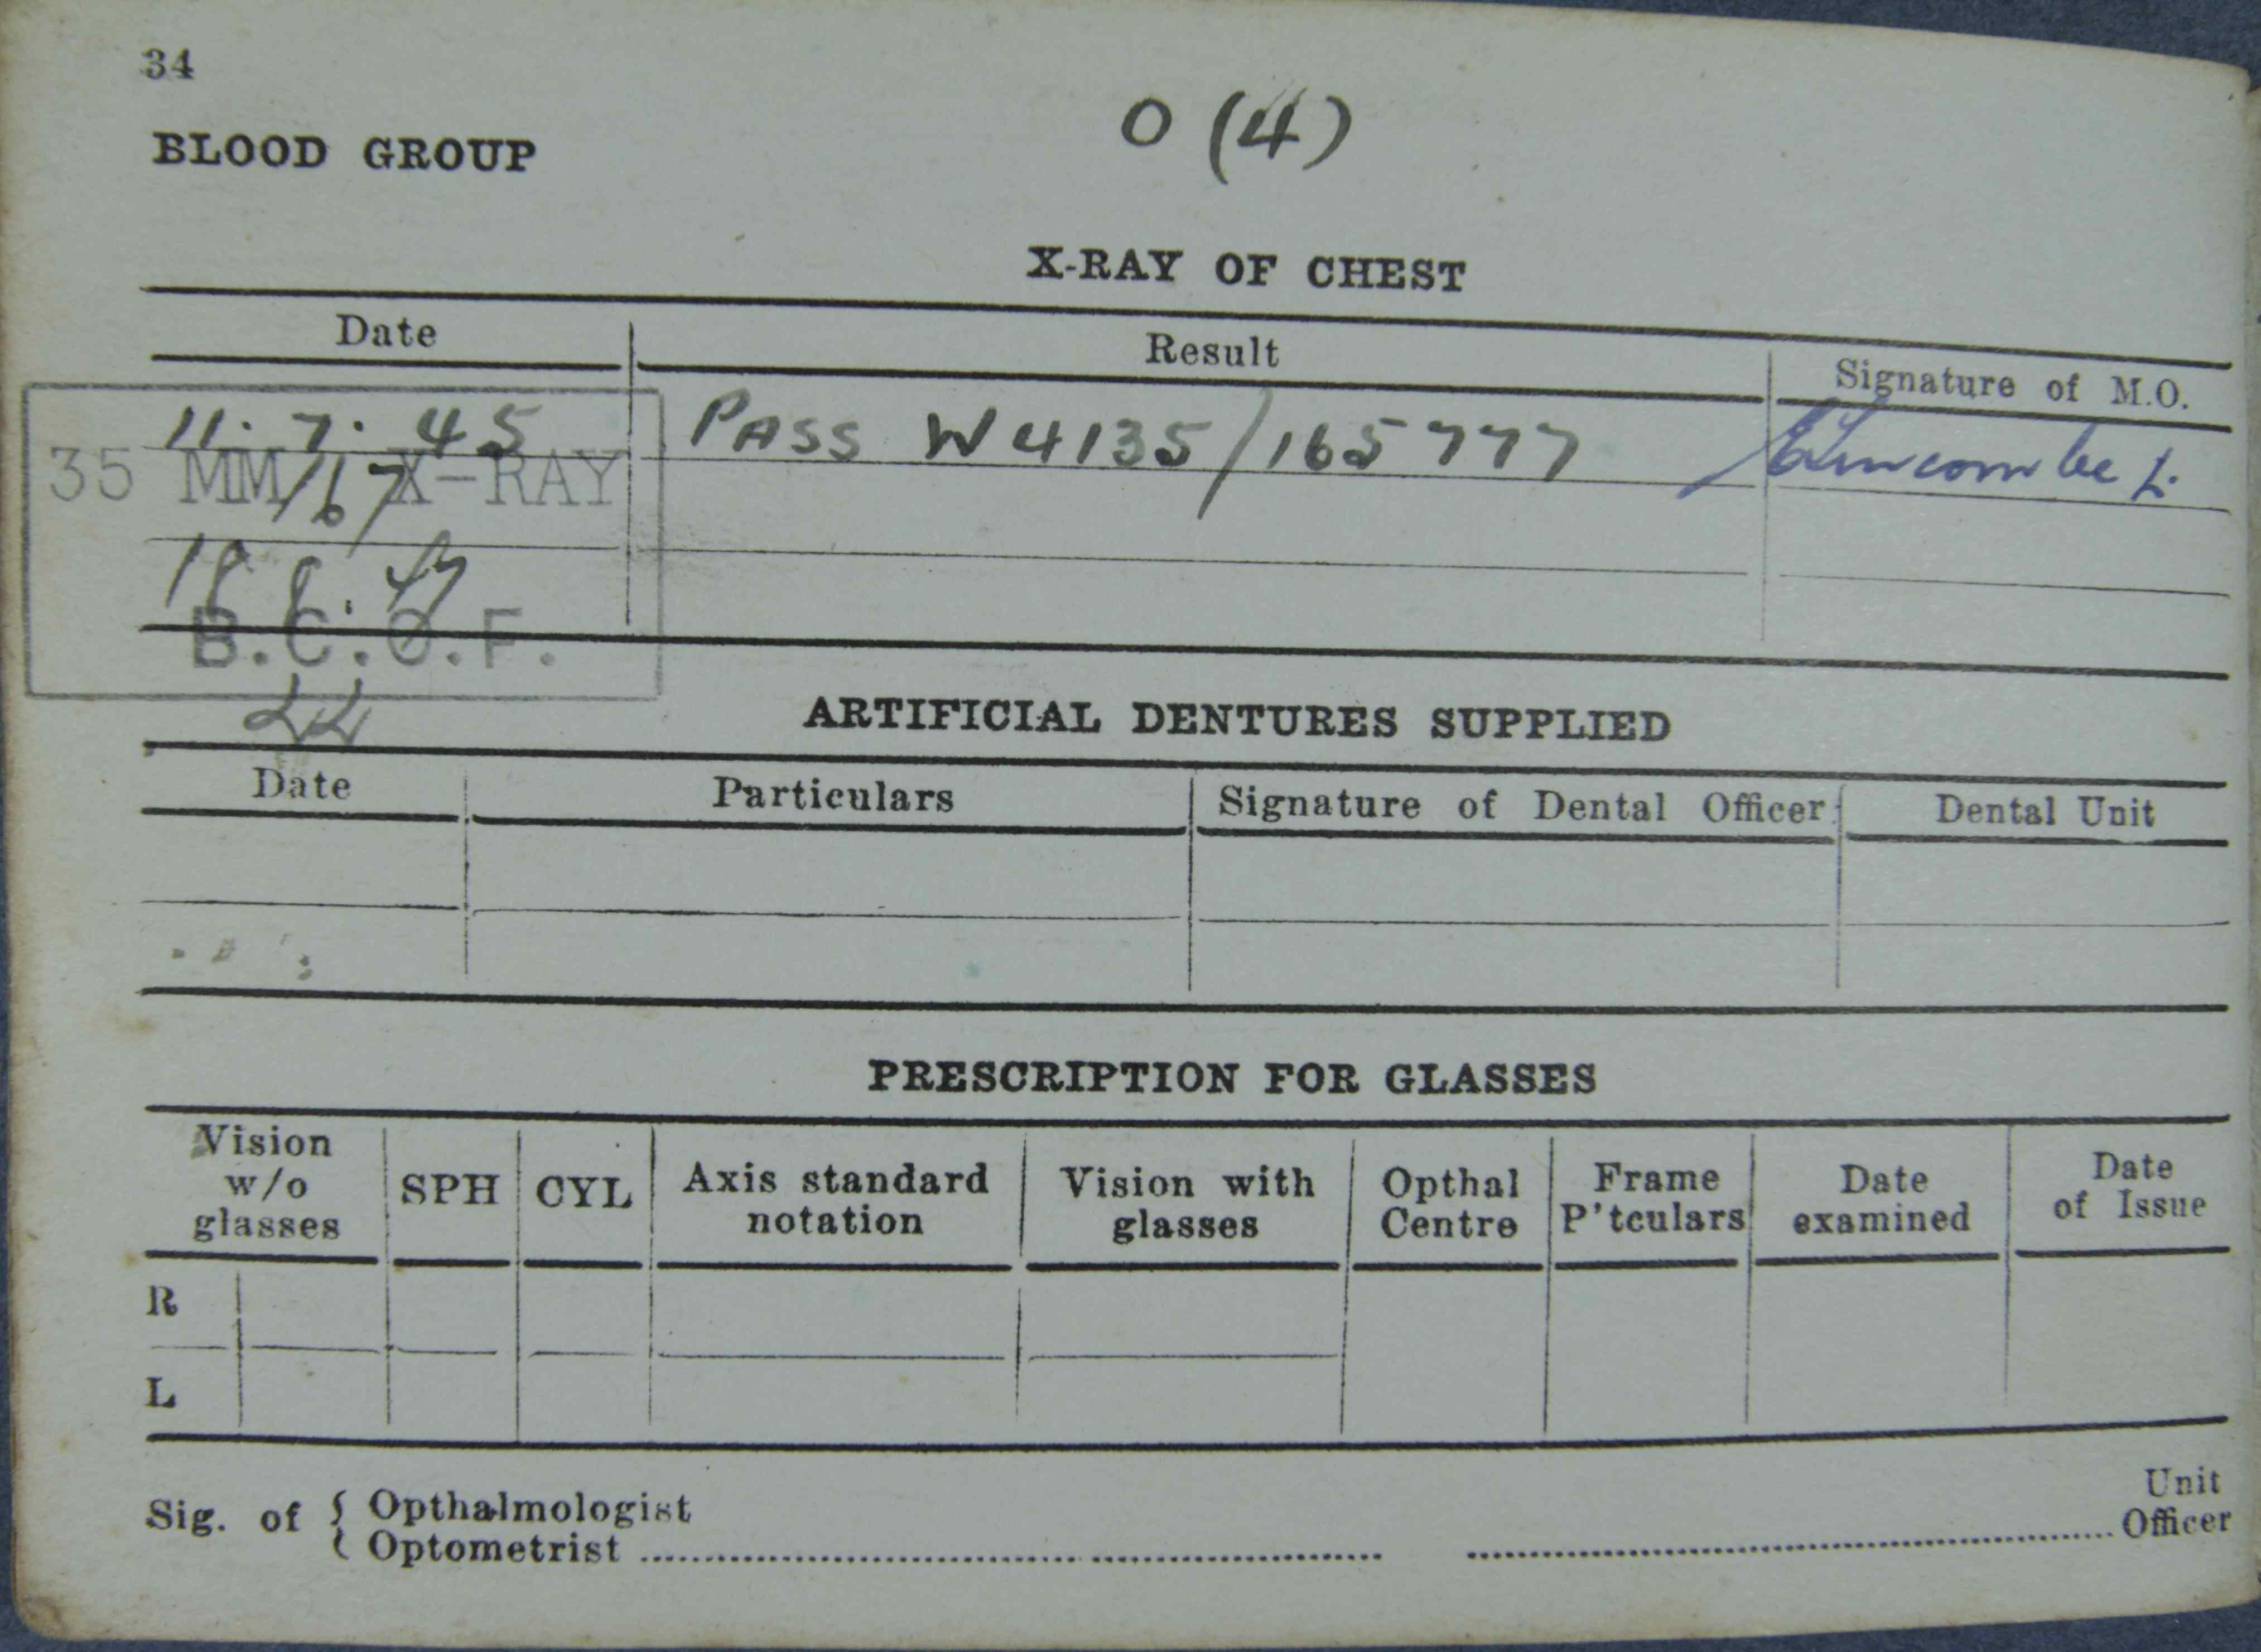 34
BLOOD GROUP O (4)
X-RAY OF CHEST
Date Result Signature of M.O.
11. 7. 45 PASS W4135/165777
35 MM X-RAY
167
18 8. 47
B.C.O.F.
ARTIFICIAL DENTURES SUPPLIED
Date Particulars Signature of Dental Officer Dental Unit
PRESCRIPTION FOR GLASSES
Vision w/o glasses SPH CYL Axis standard notation Vision with glasses Opthal Centre Frame P'tculars Date examined Date of Issue
R
L
Sig. of { Opthalmologist
Optometrist ........................................ ........................................ Unit Officer